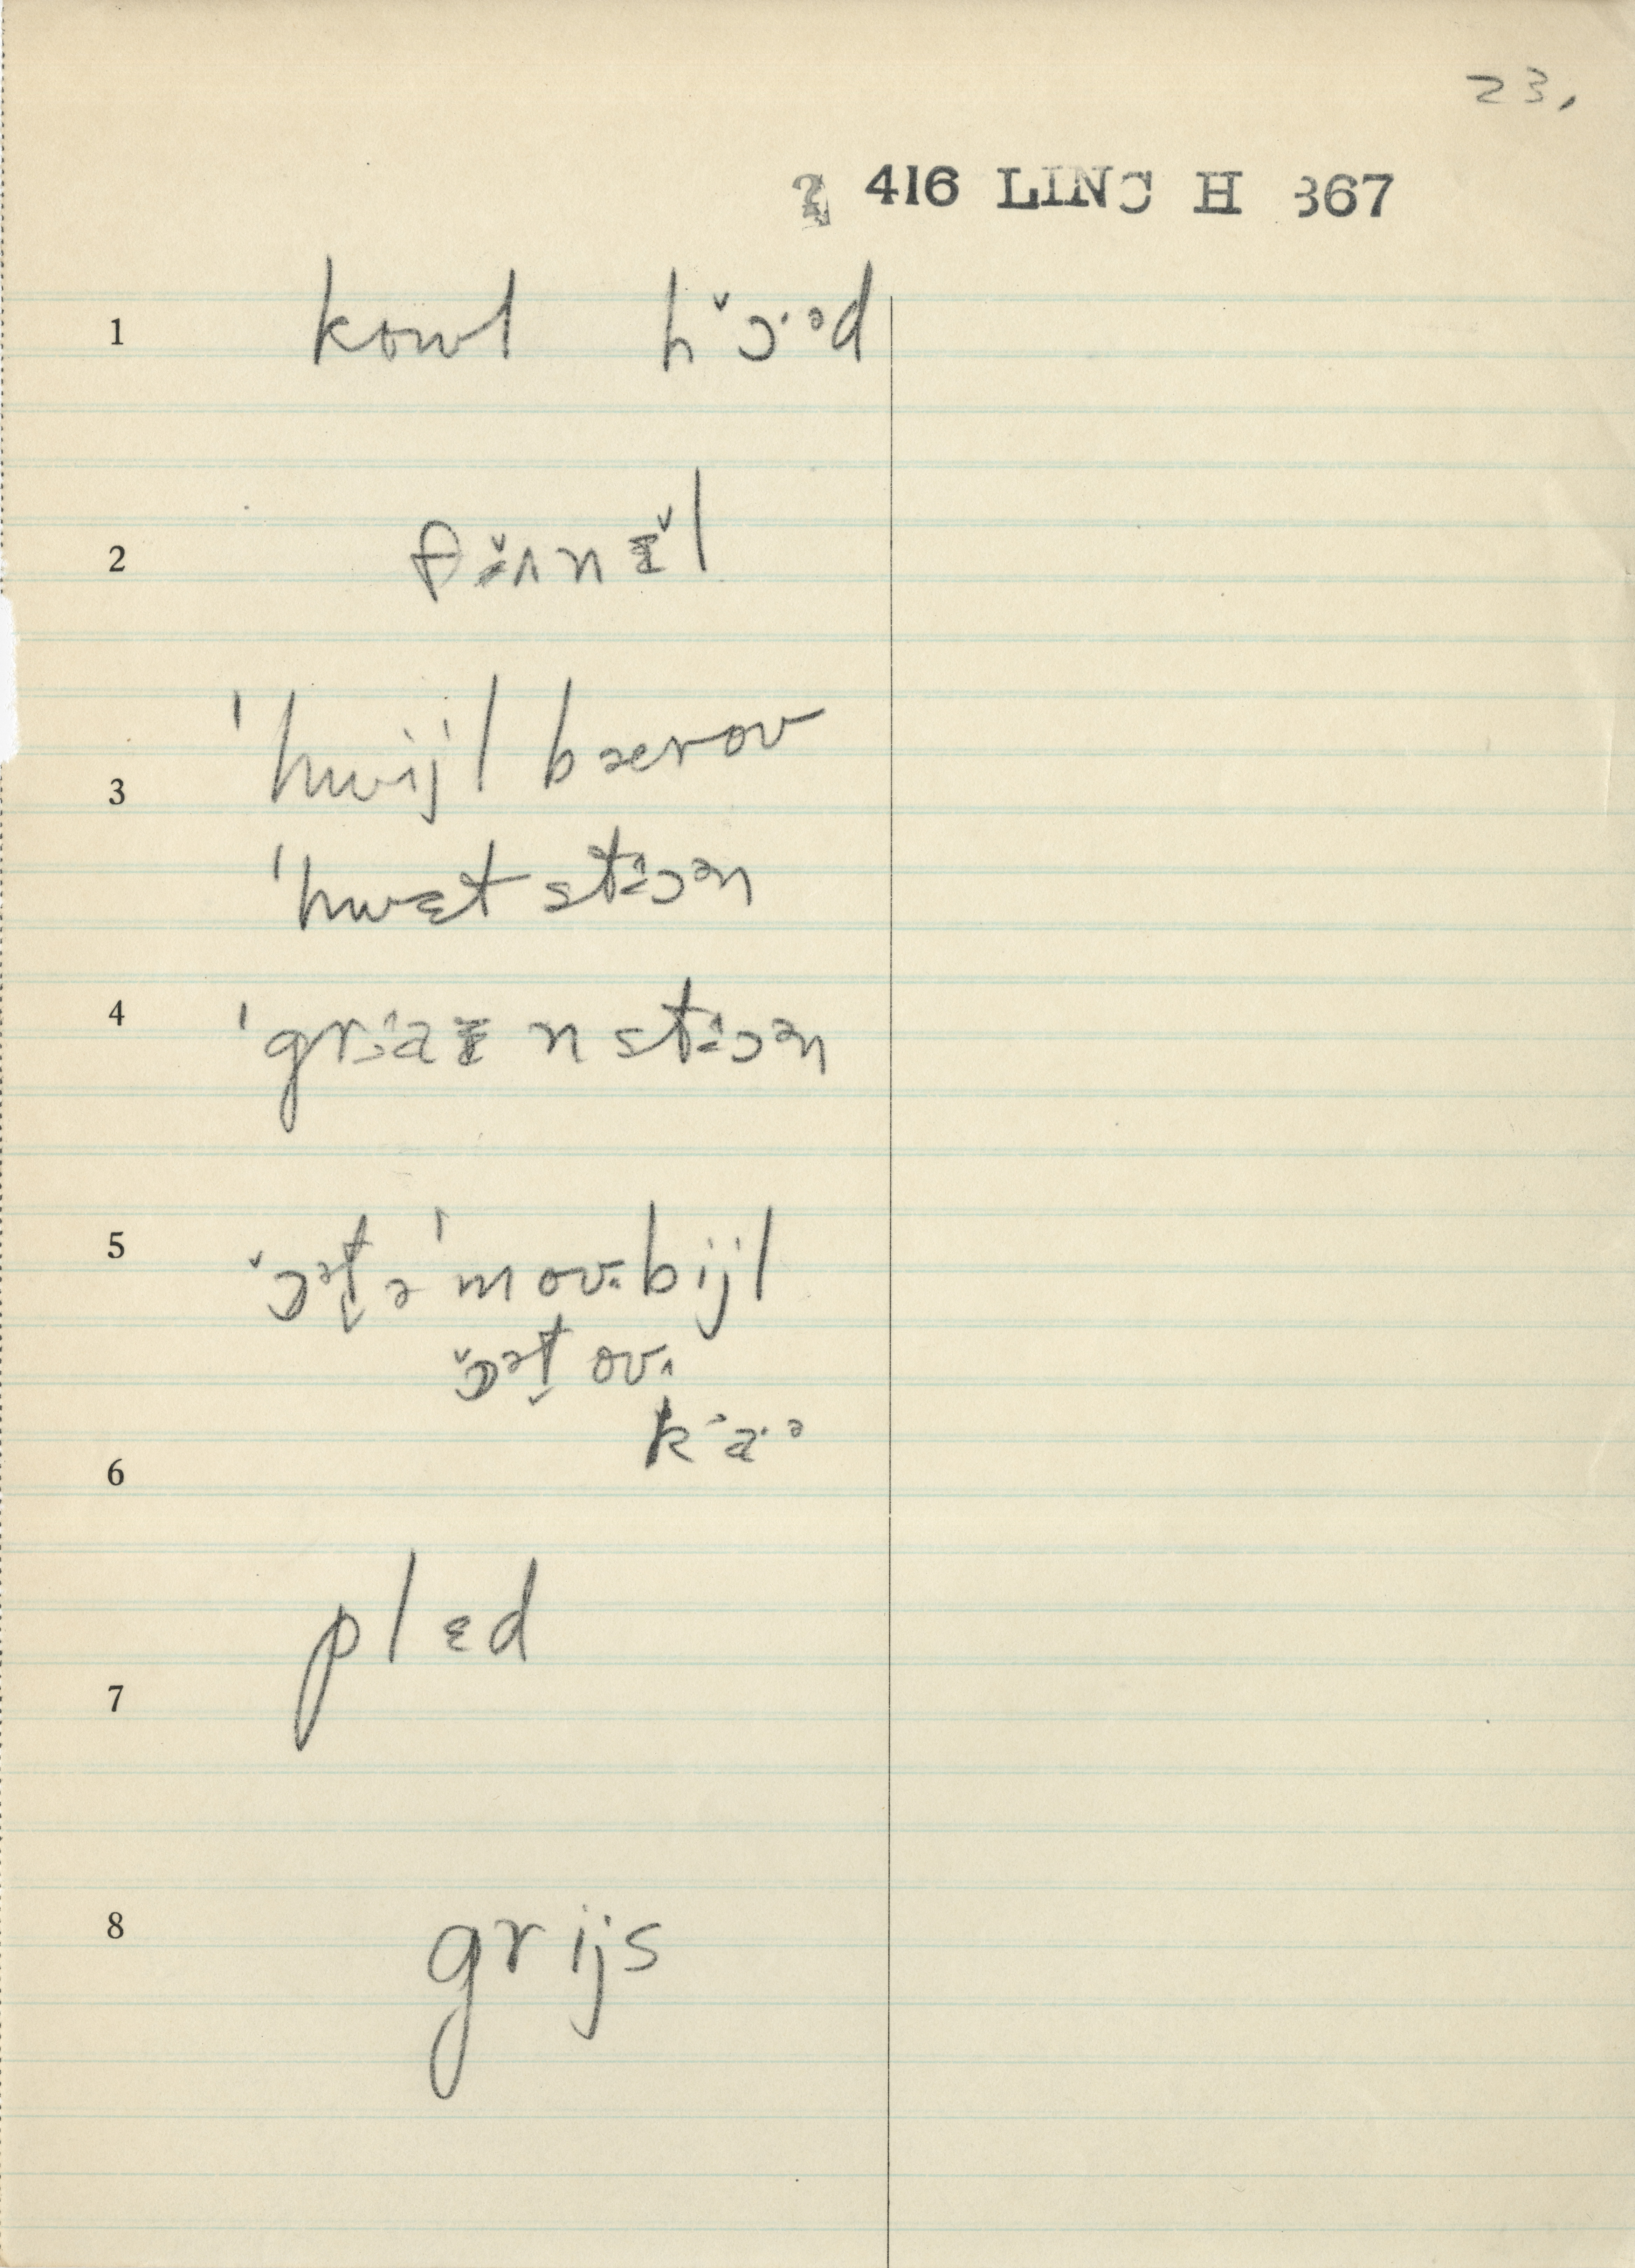 23.
2 416 LINC H 367
1 kowl hɔ̌·ᵊd
2 fɜ̌ʌnɪ̌l
3 'hwijl bærov
'hwɛt stɔən
4 'graɪnstɔən
5 ɔ̌ət̬ə'movbijl
ɔ̌ət̬ov
ka·ᵊ
6
7 plɛd
8 grijs